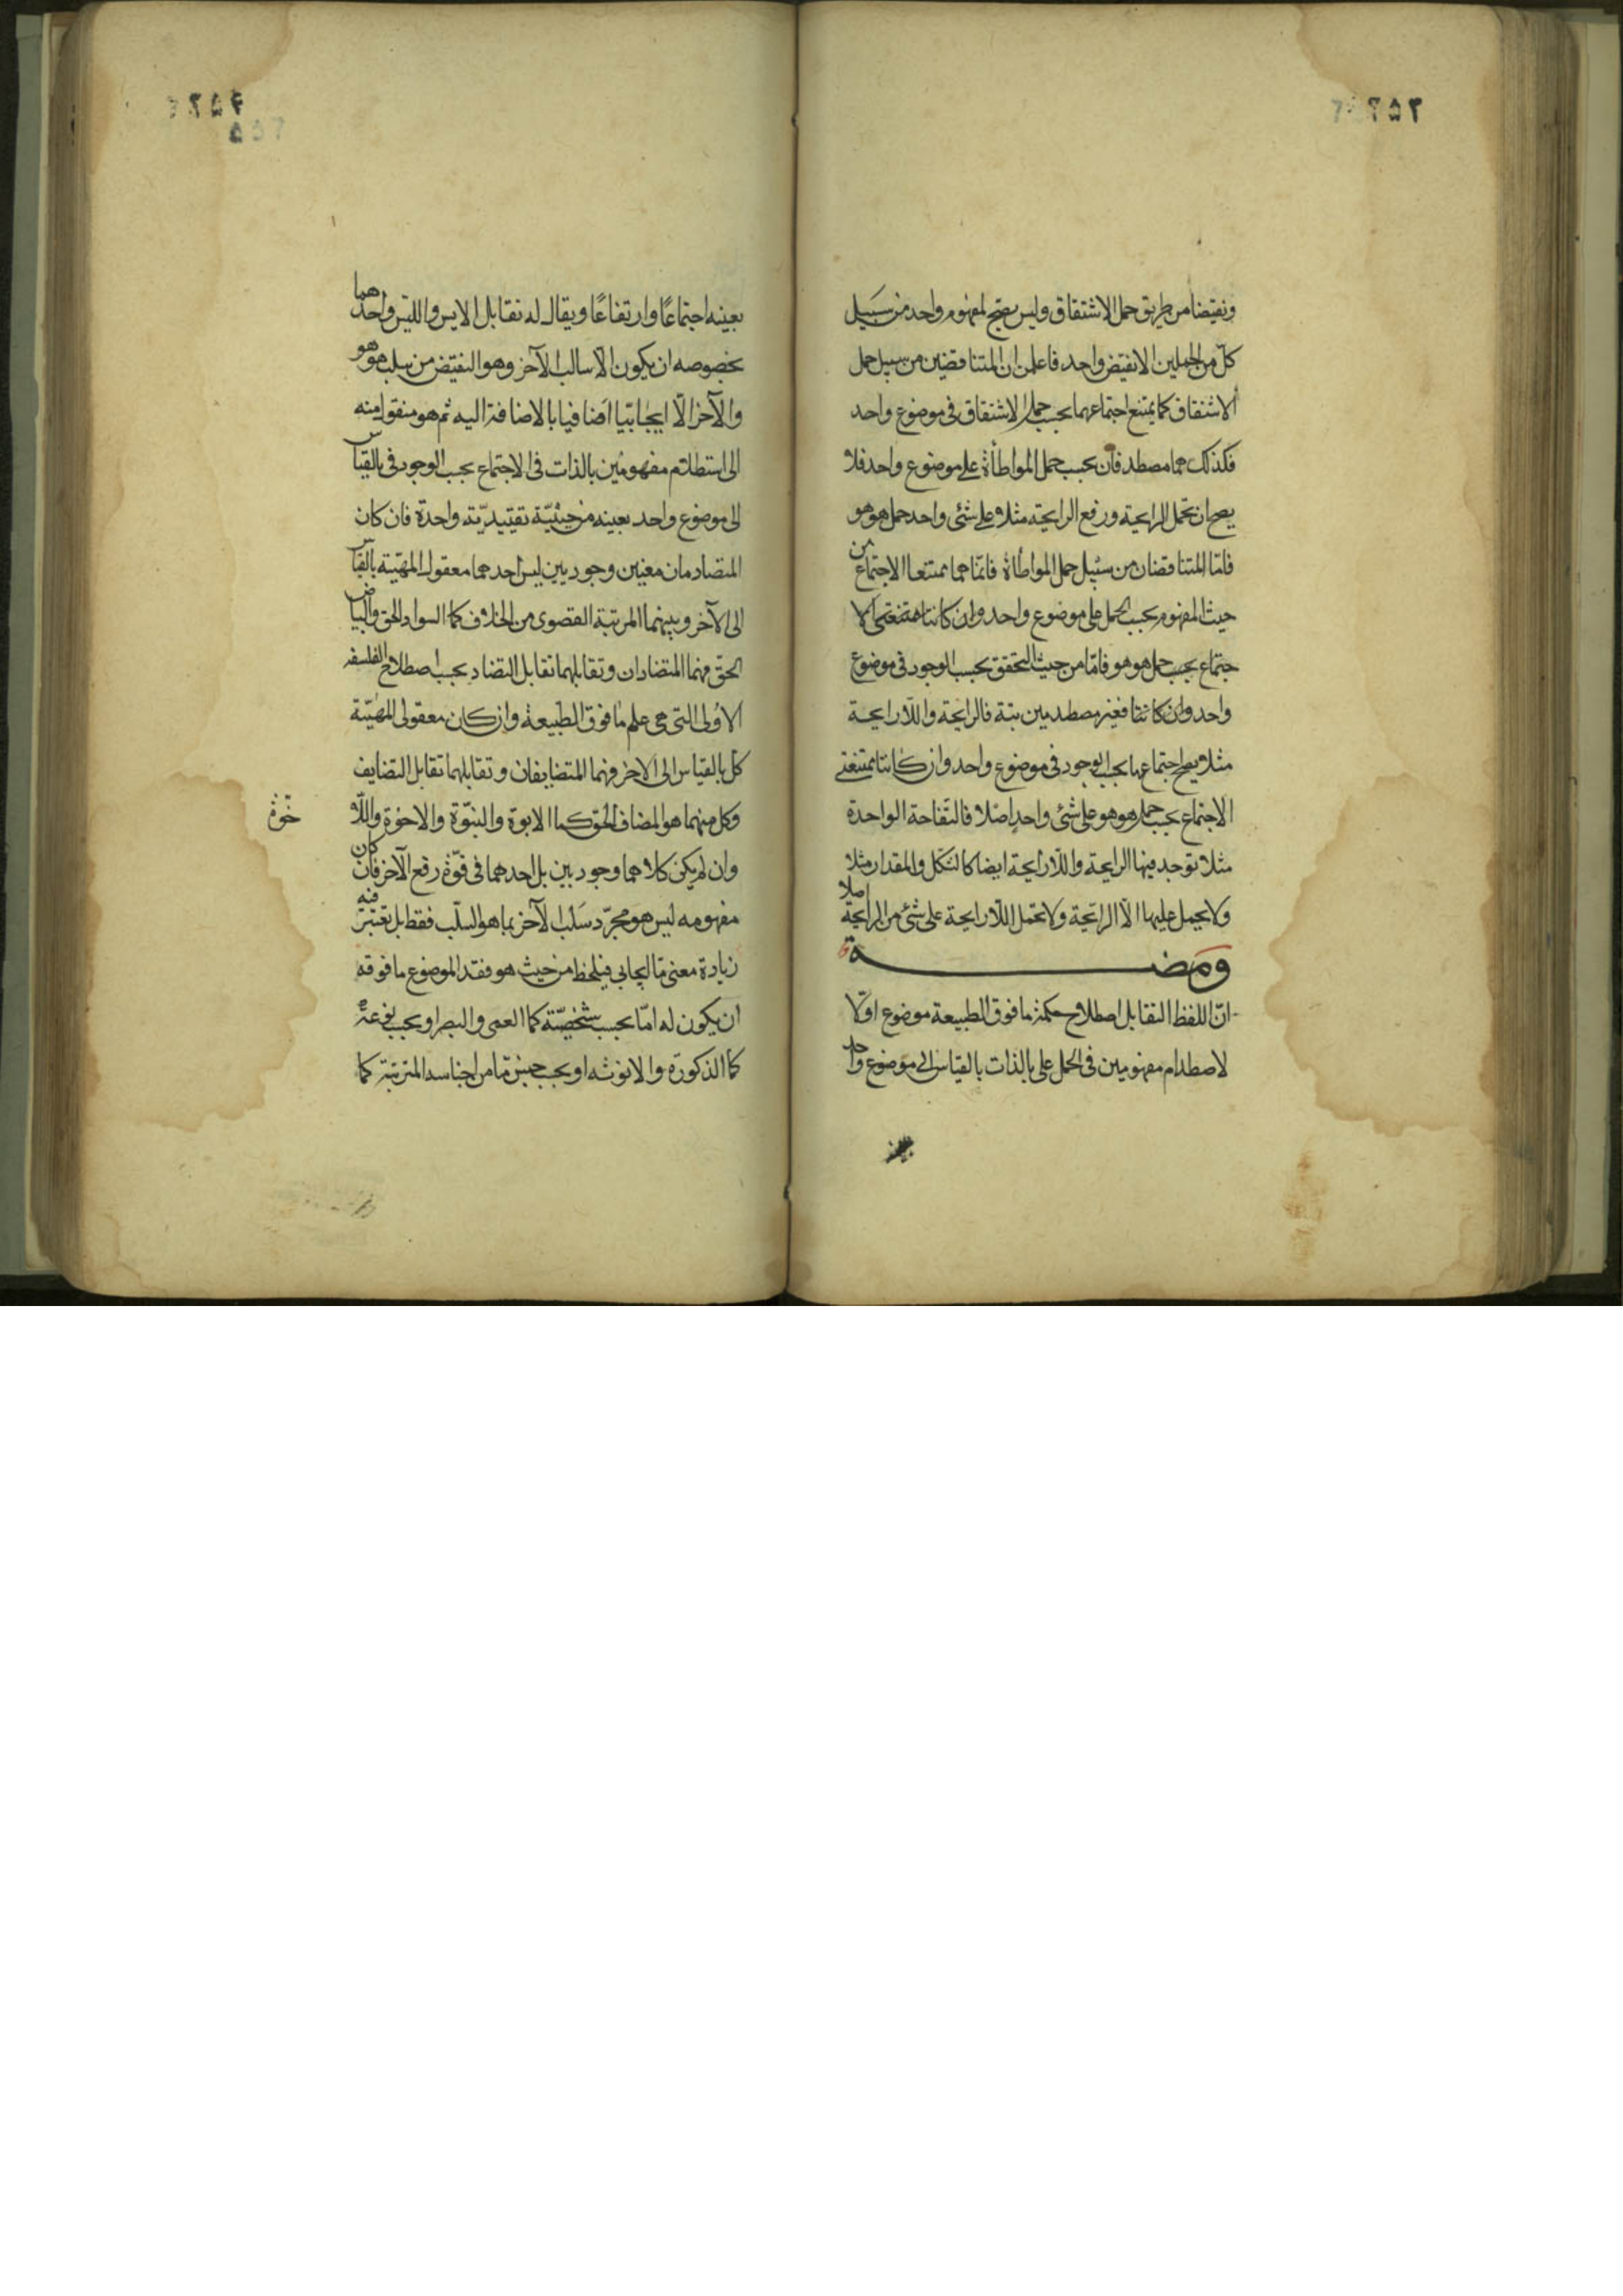 ونقيضا من طريق حمل الاشتقاق وليس يصح لمفهوم واحد من سبيل
كل من الحملين الا نقيض واحد فاعلمن ان المتناقضين من سبيل حمل
الاشتقاق كما يمتنع اجتماعهما بحسب حمل الاشتقاق في موضوع واحد
فكذلك هما مصطدمان بحسب حمل المواطأة على موضوع واحد فلا
يصح ان تحمل الرايحة ورفع الرايحة مثلا على شئ واحد حمل هو هو
فامّا المتناقضان من سبيل حمل المواطأة فانما هما ممتنعا الاجتماع من
حيث المفهوم بحسب الحمل على موضوع واحد وان كانتا ممتنعتي الا
جتماع بحسب حمل هو هو فامّا من حيث التحقق بحسب الوجود في موضوع
واحد وان كانتا فغير مصطدمين بتة فالرايحة واللّارايحة
مثلا يصح اجتماعهما بحسب الوجود في موضوع واحد وان كانتا ممتنعتي
الاجتماع بحسب حمل هو هو على شئ واحد اصلا فالتفاحة الواحدة
مثلا توجد فيها الرايحة واللّارايحة ايضا كالشكل والمقدار مثلا
ولا يحمل عليها الّا الرايحة ولا تحمل اللّارايحة على شئ من الرايحة اصلا
ومضة
انّ اللفظ التقابل اصطلاح حكمة ما فوق الطبيعة موضوع اوّلا
لاصطدام مفهومين في الحمل على بالذات بالقياس الى موضوع واحد
بعينه اجتماعًا وارتفاعًا ويقال له تقابل الايس والليس واحدهما
بخصوصه ان يكون الّا سالب الآخر وهو النقيض من سلب هو هو
والآخر الّا ايجابيّا اضافيا بالاضافة اليه ثم هو منقول منه
الى استطلام مفهومين بالذات في الاجتماع بحسب الوجود في بالقياس
الى موضوع واحد بعينه من حيثيّة تقييديّة واحدة فان كان
المتصادمان معنيين وجوديين ليس احدهما معقول المهيّة بالقياس
الى الآخر وبينهما المرتبة القصوى من الخلاف كما السواد الحق والبياض
الحق فهما المتضادان وتقابلهما تقابل التضاد بحسب اصطلاح الفلسفة
الاولى التي هي علم ما فوق الطبيعة وان كان معقولي المهيّة
كل بالقياس الى الاخر فهما المتضايفان وتقابلهما تقابل التضايف
وكل منهما هو المضاف الحق كما الابوة والبنوّة والاخوّة واللّا
خوّة
وان لم يكن كلاهما وجوديين بل احدهما في قوّة رفع الآخر فان كان
مفهومه ليس هو مجرّد سلب الآخر بما هو السلب فقط بل تعتبر فيه
زيادة معنى مّا ايجابي فيلحظ من حيث هو فقد الموضوع ما فوقه
ان يكون له امّا بحسب شخصيّته كما العمى والبصر او بحسب نوعه
كما الذكورة والانوثة او بحسب جنس مّا من اجناسه المترتبة كما